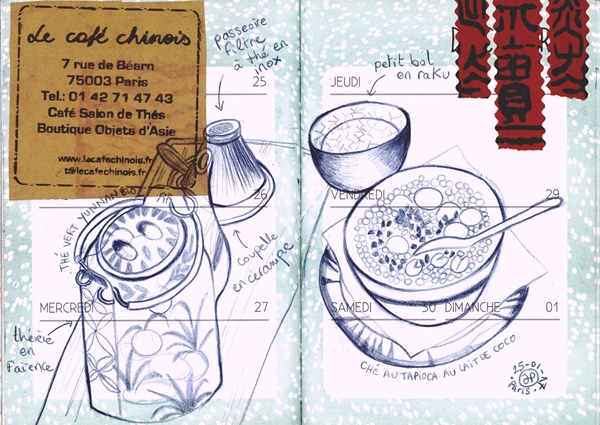 Le café chinois
7 rue de Béarn
75003 Paris
Tel.: 01 42 71 47 43
Café Salon de Thés
Boutique Objets d'Asie
www.lacafechinois.fr
t@lecafechinois.fr
passoire
filtre
à thé en
inox
25
THÉ VERT YUNNAN BIO
26
coupelle
en céramique
MERCREDI
27
théière
en
Faïence
petit bol
en raku
JEUDI
VENDREDI
29
SAMEDI
30
DIMANCHE
01
CHÉ AU TAPIOCA AU LAIT DE COCO
25-01
Paris